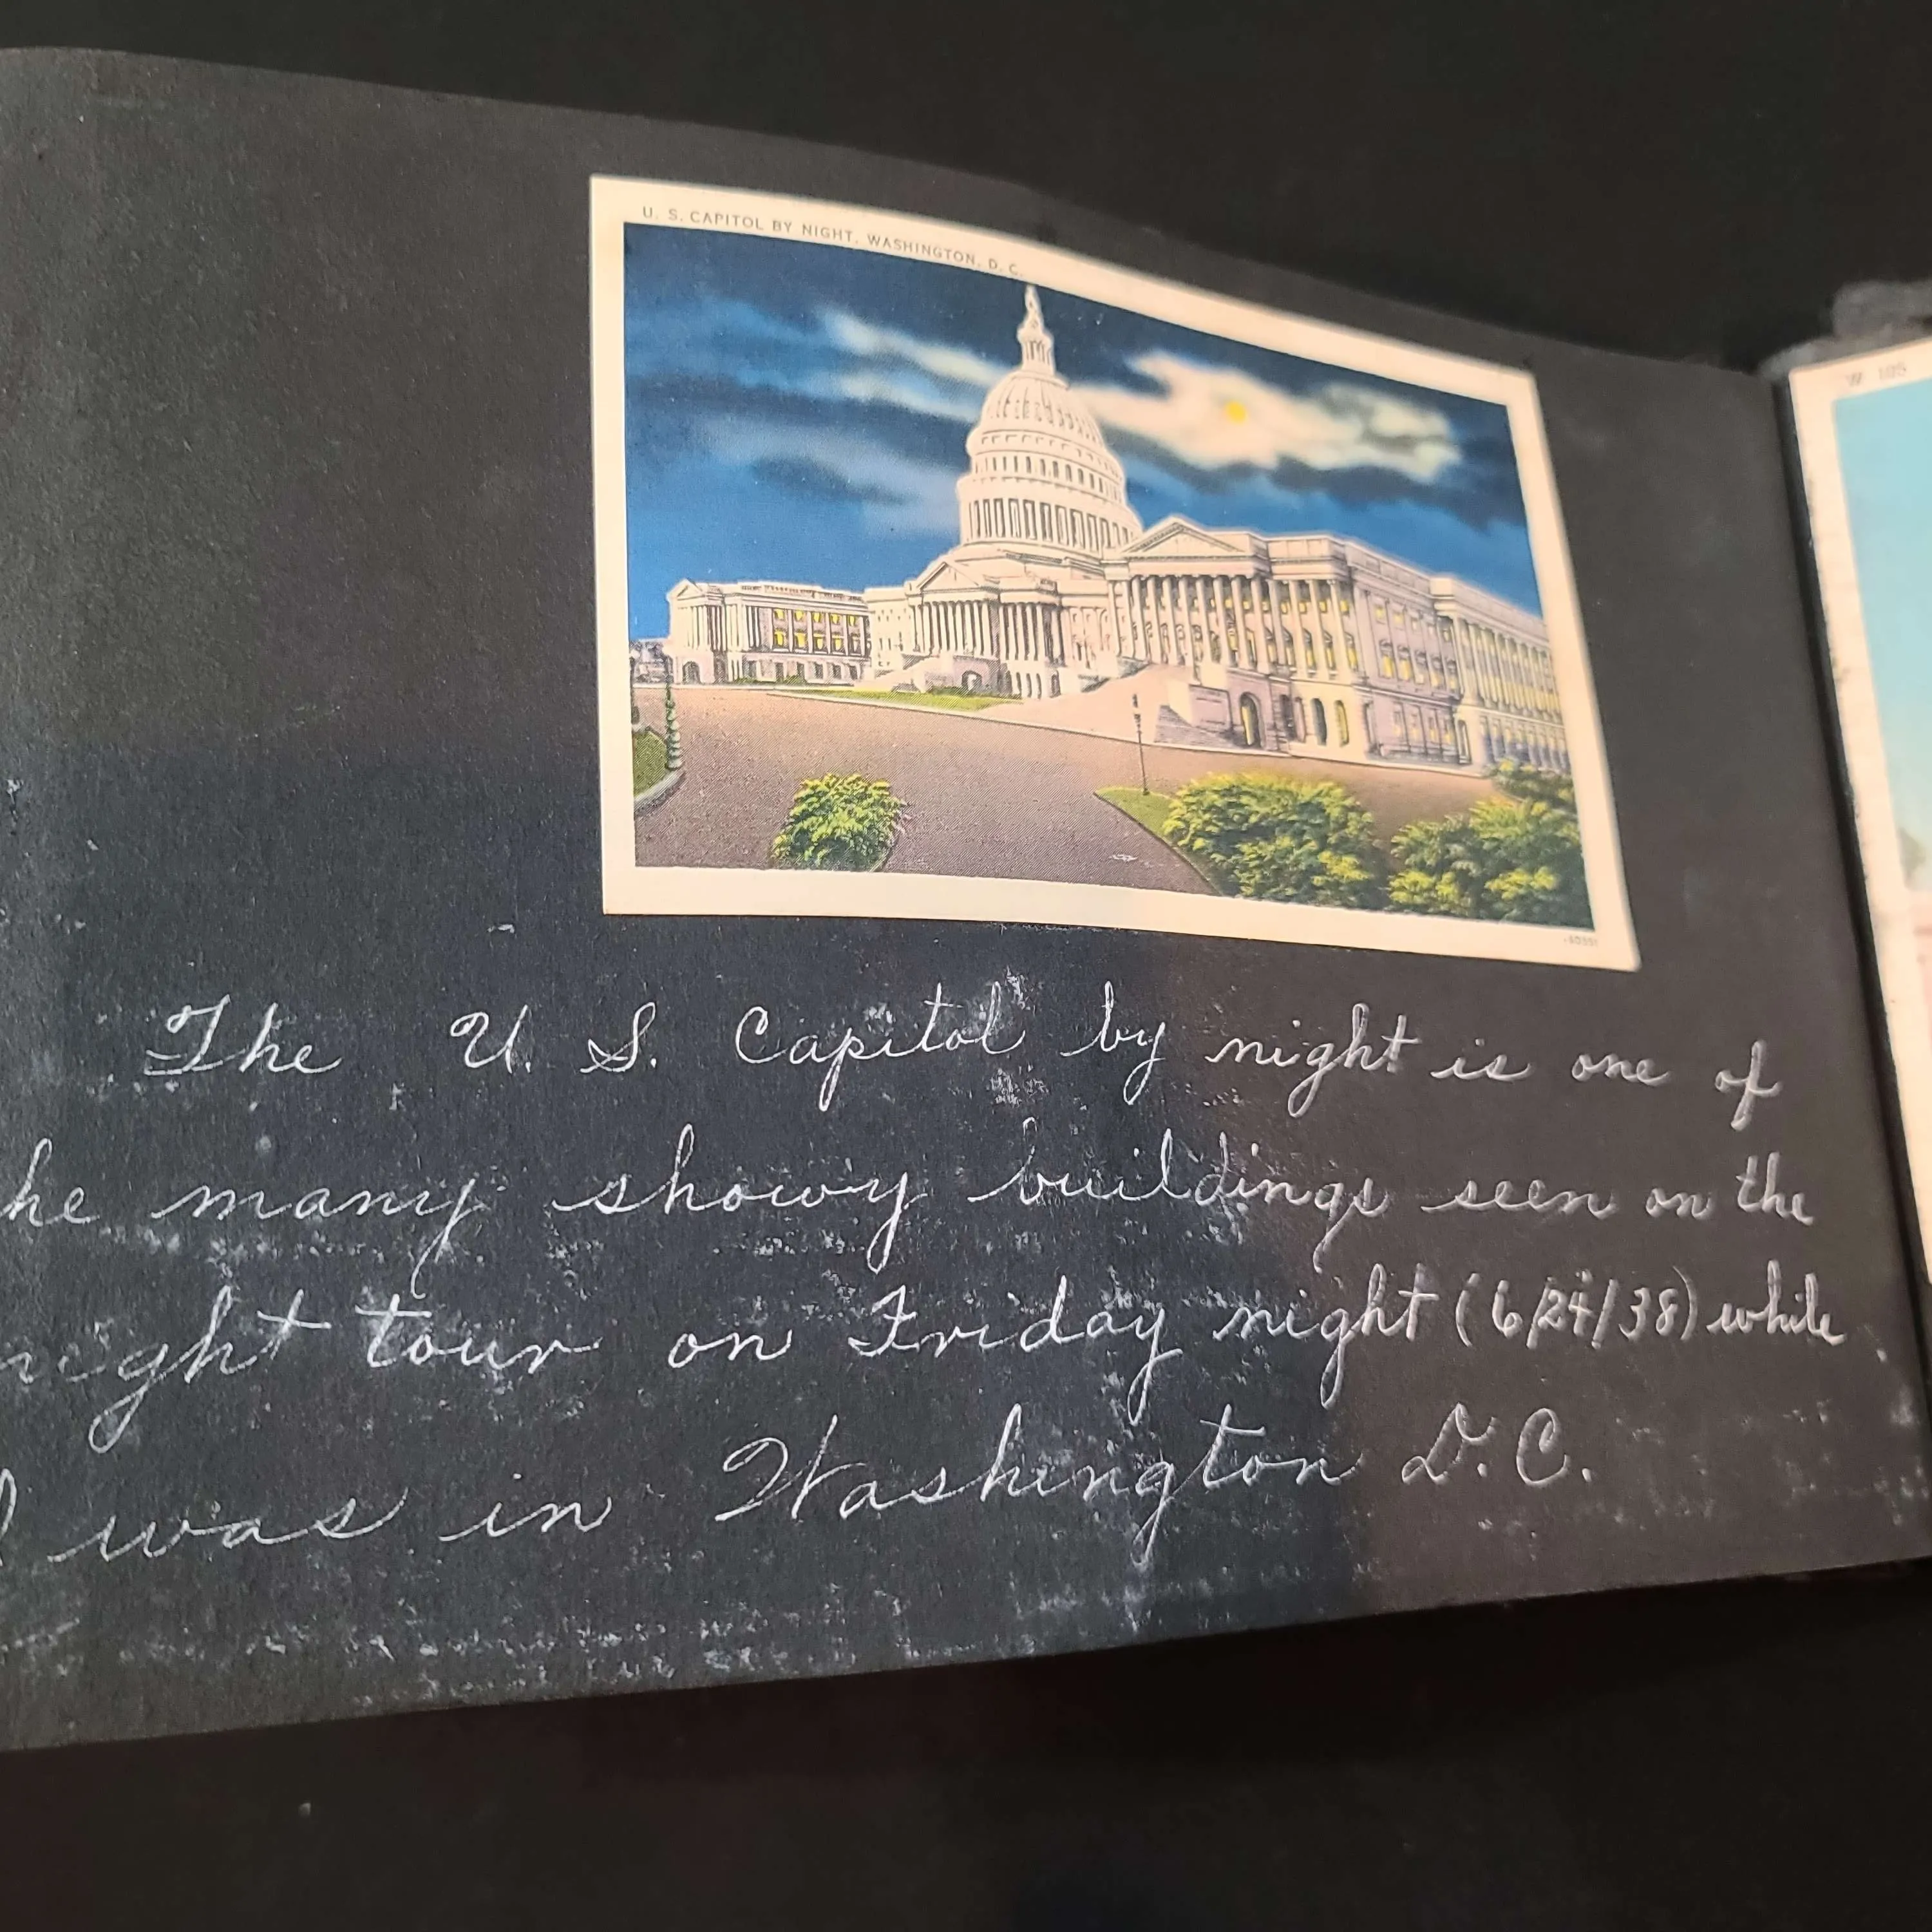 U. S. CAPITOL BY NIGHT, WASHINGTON, D. C.
W 105
The U. S. Capitol by night is one of
he many showy buildings seen on the
night tour on Friday night (6/24/38) while
I was in Washington D. C.